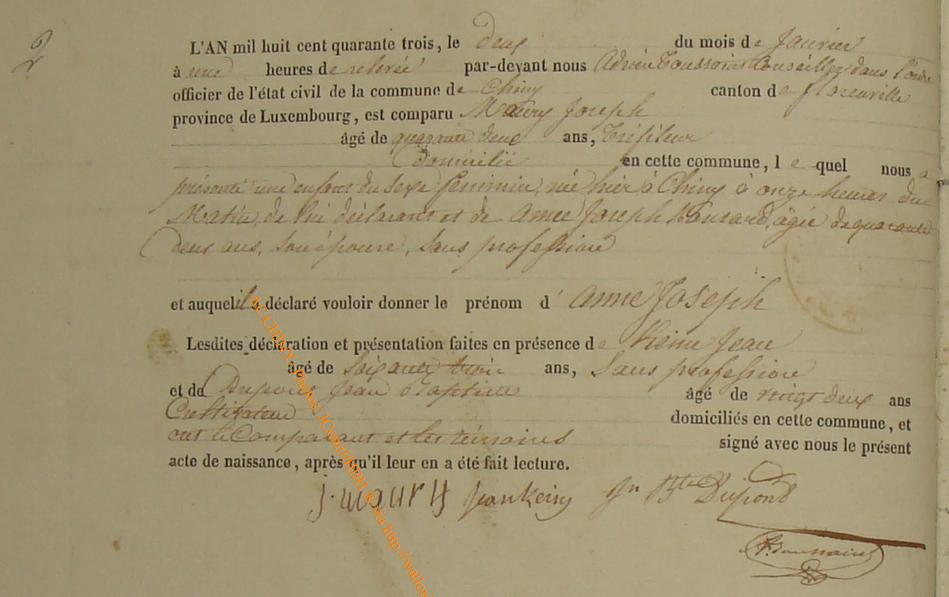 2
L'AN mil huit cent quarante trois, le deux du mois de Janvier
à une heures de relevée par-devant nous Adrien Toussaint Conseiller dans l'ordre
officier de l'état civil de la commune de Chiny canton de florenville
province de Luxembourg, est comparu Maury Joseph
âgé de quarante deux ans, tréfileur
domicilié en cette commune, le quel nous a
présenté une enfant du sexe féminin, née hier à Chiny à onze heures du
Matin, de lui déclarant et de Anne Joseph, âgée de quarante
deux ans, son épouse, sans profession
et auquel il a déclaré vouloir donner le prénom d' Anne Joseph
Lesdites déclaration et présentation faites en présence de Jean
âgé de soixante trois ans, Sans profession
et de Dupont Jean Baptiste âgé de vingt deux ans
Cultivateur domiciliés en cette commune, et
ont le Comparant et les témoins signé avec nous le présent
acte de naissance, après qu'il leur en a été fait lecture.
J. maury Jean Bte Dupond